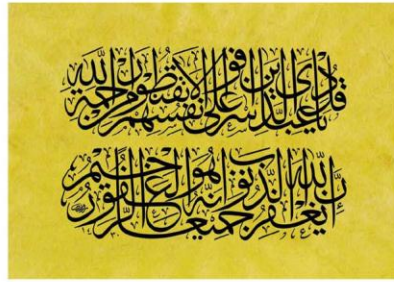 قُلْ يَا عِبَادِيَ الَّذِينَ أَسْرَفُوا عَلَى أَنفُسِهِمْ لَا تَقْنَطُوا مِن رَّحْمَةِ اللَّهِ
إِنَّ اللَّهَ يَغْفِرُ الذُّنُوبَ جَمِيعًا إِنَّهُ هُوَ الْغَفُورُ الرَّحِيمُ